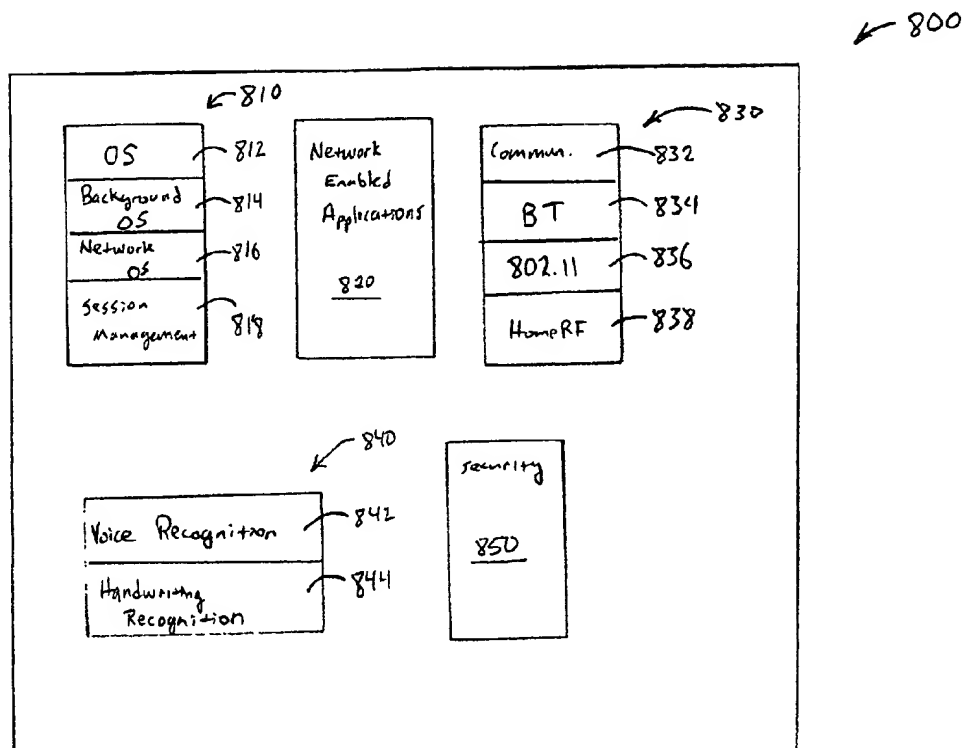 800
810
830
OS
812
Background
OS
814
Network
OS
816
Session
Management
818
Network
Enabled
Applications
820
Commun.
832
BT
834
802.11
836
HomeRF
838
840
Voice Recognition
842
Handwriting
Recognition
844
security
850